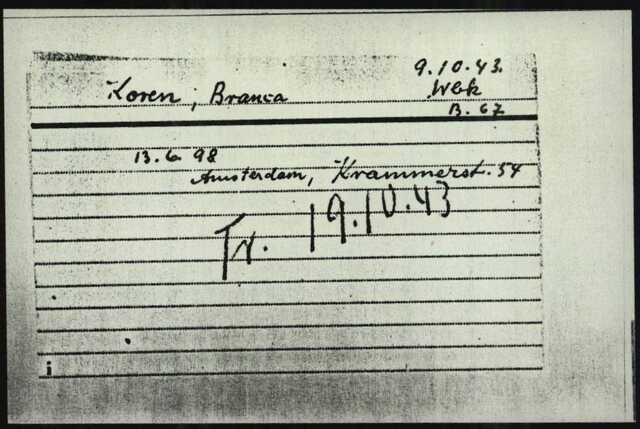 9.10.43.
Koren, Branca Wbk
B. 67
13.6.98
Amsterdam, Krammerst. 54
Tr. 19.10.43
i